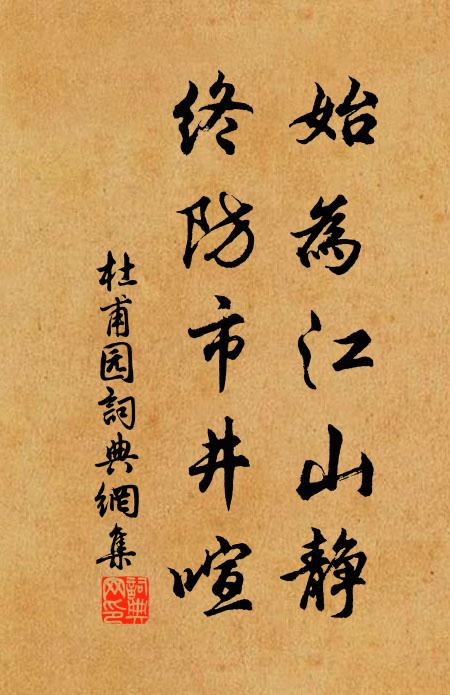 始為江山静
终防市井喧
杜甫园詞典網集
詞典網印